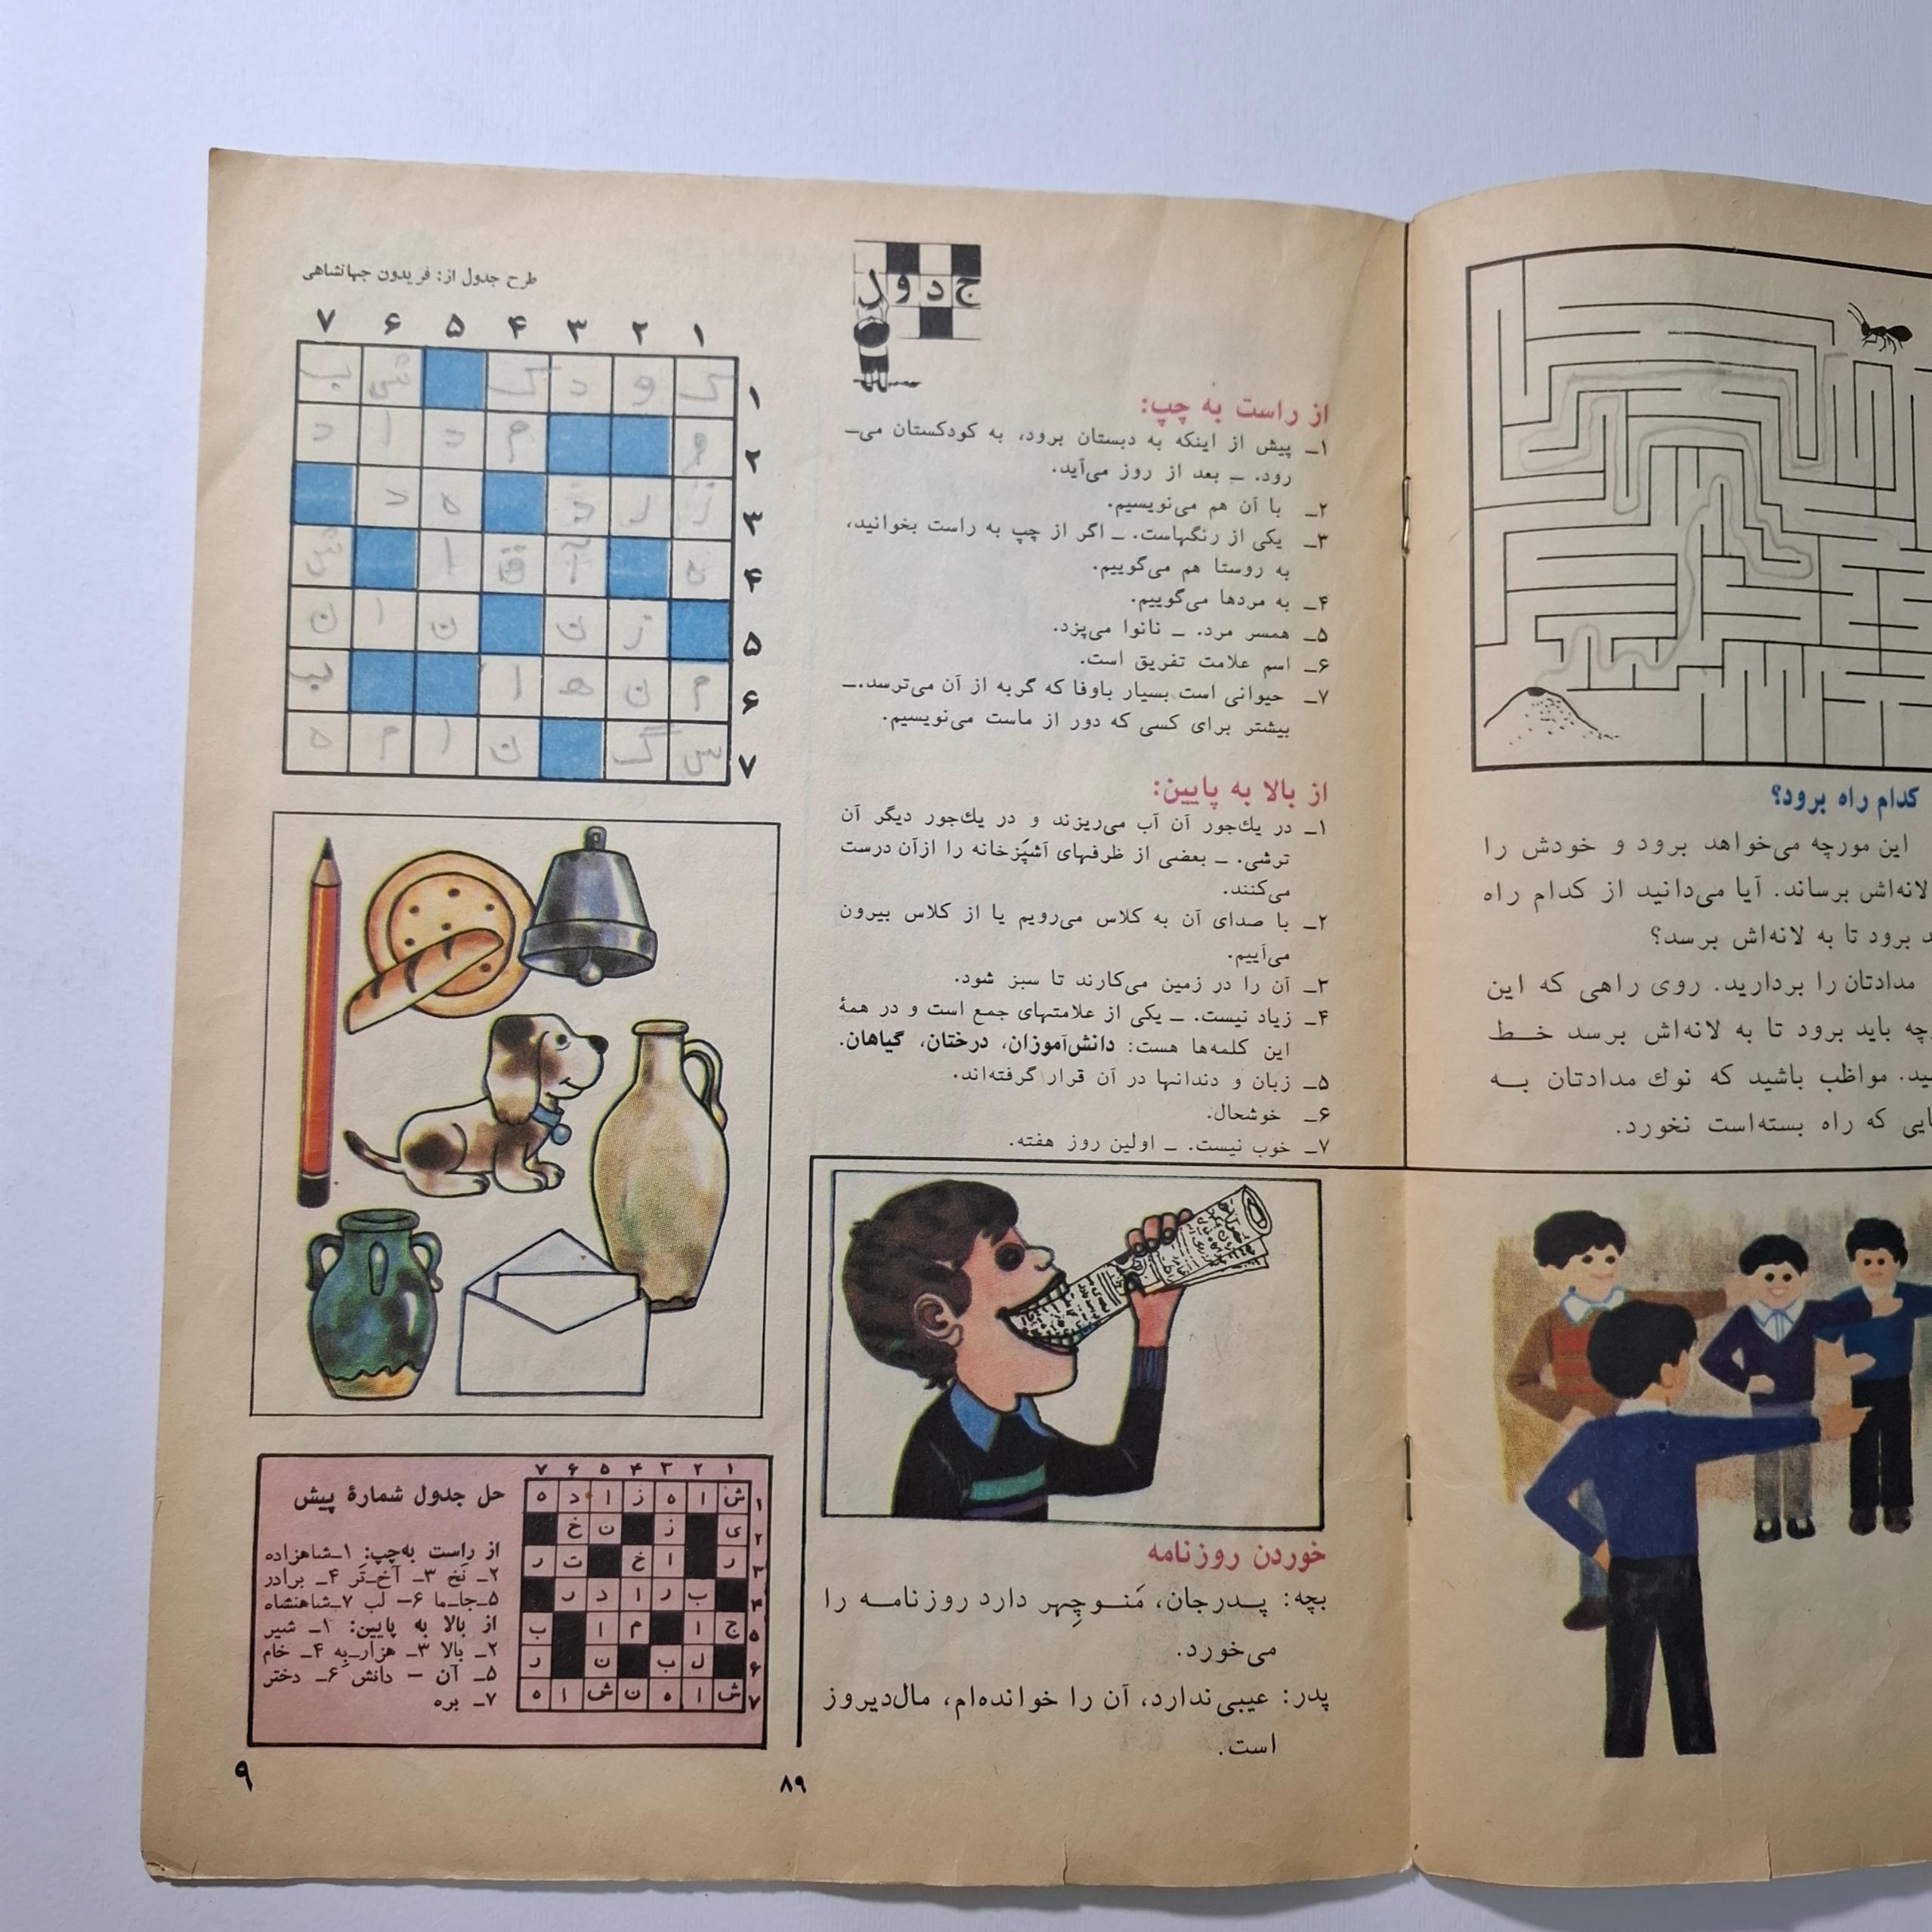 جدول
طرح جدول از: فریدون جهانشاهی
۱ ۲ ۳ ۴ ۵ ۶ ۷
ک و د ک ش ب ۱
و م د ا د ۲
ز ر د ه د ۳
ه آ ق ا ش ۴
ز ن ن ا ن ۵
م ن ه ا ب ۶
س گ ن ا م ه ۷
از راست به چپ:
۱ـ پیش از اینکه به دبستان برود، به کودکستان می‌ـ
رود. ـ بعد از روز می‌آید.
۲ـ با آن هم می‌نویسیم.
۳ـ یکی از رنگهاست. ـ اگر از چپ به راست بخوانید،
به روستا هم می‌گوییم.
۴ـ به مردها می‌گوییم.
۵ـ همسر مرد. ـ نانوا می‌پزد.
۶ـ اسم علامت تفریق است.
۷ـ حیوانی است بسیار باوفا که گربه از آن می‌ترسد.ـ
بیشتر برای کسی که دور از ماست می‌نویسیم.
از بالا به پایین:
۱ـ در یك‌جور آن آب می‌ریزند و در یك‌جور دیگر آن
ترشی. ـ بعضی از ظرفهای آشپَزخانه را ازآن درست
می‌کنند.
۲ـ با صدای آن به کلاس می‌رویم یا از کلاس بیرون
می‌آییم.
۳ـ آن را در زمین می‌کارند تا سبز شود.
۴ـ زیاد نیست. ـ یکی از علامتهای جمع است و در همهٔ
این کلمه‌ها هست: دانش‌آموزان، درختان، گیاهان.
۵ـ زبان و دندانها در آن قرار گرفته‌اند.
۶ـ خوشحال.
۷ـ خوب نیست. ـ اولین روز هفته.
حل جدول شمارهٔ پیش
از راست به‌چپ: ۱ـشاهزاده
۲ـ نَخ ۳ـ آخ‌ـتَر ۴ـ برادر
۵ـجاـما ۶ـ لب ۷ـشاهنشاه
از بالا به پایین: ۱ـ شیر
۲ـ بالا ۳ـ هزارـبِه ۴ـ خام
۵ـ آن - دانش ۶ـ دختر
۷ـ بره
۱ ۲ ۳ ۴ ۵ ۶ ۷
ش ا ه ز ا د ه ۱
ی ز ن خ ۲
ر ا خ ت ر ۳
ب ر ا د ر ۴
ج ا م ا ب ۵
ل ب ن ر ۶
ش ا ه ن ش ا ه ۷
خوردن روزنامه
بچه: پـدرجان، مَنـوچِهر دارد روزنامـه را
می‌خورد.
پدر: عیبی‌ندارد، آن را خوانده‌ام، مال‌دیروز
است.
۹
۸۹
کدام راه برود؟
این مورچه می‌خواهد برود و خودش را
لانه‌اش برساند. آیا می‌دانید از کدام راه
برود تا به لانه‌اش برسد؟
مدادتان را بردارید. روی راهی که این
باید برود تا به لانه‌اش برسد خـط
مواظب باشید که نوك مدادتان بـه
که راه بسته‌است نخورد.